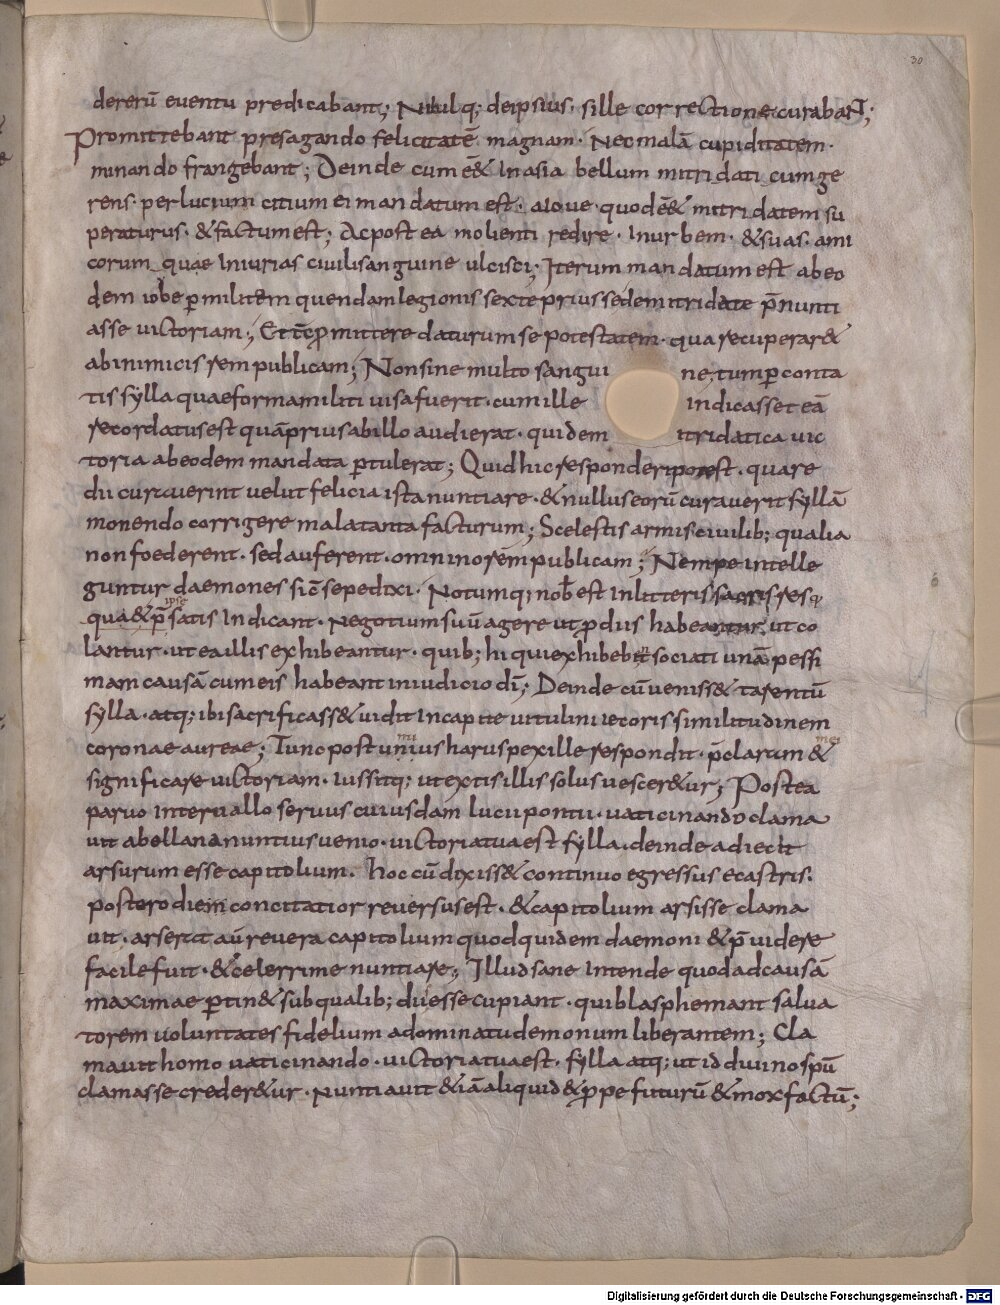 30
dererū eventu predicabant; Nihilq; deipsius. sille correctione curabant;
Promittebant presagando felicitatē magnam. Nec malā cupiditatem.
minando frangebant; Deinde cum e& In asia bellum mitridati cumge
rens. per lucium citium ei mandatum est. aioue. quod e& mitridatem su
peraturus. & factum est; Ac post ea molienti redire. Inurbem. & suas. ami
corum quae Iniurias civili sanguine ulcisci; Iterum mandatum est abeo
dem iobe p militem quendam legionis sexte prius se demitridate pnunti
asse victoriam; Et tc pmittere daturum se potestatem. qua recuperar&
abinimicis rem publicam; Non sine multo sangui ne; tum pconta
tis sylla quae forma militi visa fuerit. cum ille indicasset eā
recordatus est quā prius abillo audierat. qui dem itridatica vic
toria abeodem mandata ptulerat; Quid hic responderi potest. quare
dii curaverint velut felicia ista nuntiare. & nullus eorū curaverit syllā
monendo corrigere mala tanta facturum; Scelestis armis civilib; qualia
non foederent. sed auferent. omnino rem publicam; Nempe intelle
guntur daemones sic sepe dixi. Notumq; nob est In litteris sacris resq;
ipse
qua & p satis Indicant. Negotium suū agere ut p diis habeantur. ut co
lantur. ut ea illis exhibeantur. quib; hi qui exhibebt sociati unā pessi
mam causā cum eis habeant in iudicio di; Deinde cū veniss& tarentū
sylla. atq; ibi sacrificass& vidit In capite vitulini iecoris similitudinem
mi mei
coronae aureae; Tunc postunius haruspex ille respondit. pclarum &
significare victoriam. Iussitq; ut extis illis solus vescer&ur; Postea
parvo Intervallo servus cuiusdam lucii pontii. vaticinando clama
vit abellana nuntius venio. victoria tua est sylla. deinde adiecit
arsurum esse capitolium. hoc cū dixiss& continuo egressus e castris.
postero die concitatior reversus est. & capitolium arsisse clama
vit. arserat aū revera capitolium quod quidem daemoni & p videre
facile fuit. & celerrime nuntiare; Illud sane Intende quod ad causā
maximae ptin& sub qualib; dii esse cupiant. qui blasphemant salva
torem voluntates fidelium adominatu demonum liberantem; Cla
mavit homo vaticinando. victoria tua est. sylla atq; ut id divino spū
clamasse creder&ur. Nuntiavit & iā aliquid & ppe futurū & mox factū;
Digitalisierung gefördert durch die Deutsche Forschungsgemeinschaft - DFG